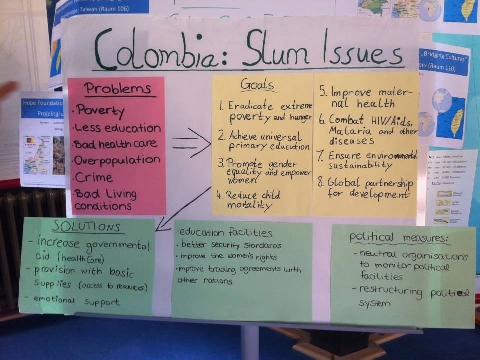 Taiwan (Raum 106)
Colombia: Slum Issues
Hope Foundation
Problems
· Poverty
· Less education
· Bad health care
· Overpopulation
· Crime
· Bad Living
conditions
Goals
1. Eradicate extreme
poverty and hunger
2. Achieve universal
primary education
3. Promote gender
equality and empower
women
4. Reduce child
mortality
5. Improve mater-
nal health
6. Combat HIV/Aids,
Malaria and other
diseases
7. Ensure environmental
sustainability
8. Global partnership
for development
SOLUTIONS
- increase governmental
aid (health care)
- provision with basic
supplies (access to resources)
- emotional support
education facilities
· better security standards
· improve the women's rights
· improve trading agreements with
other nations
political measures:
- neutral organisations
to monitor political
facilities
- restructuring political
system